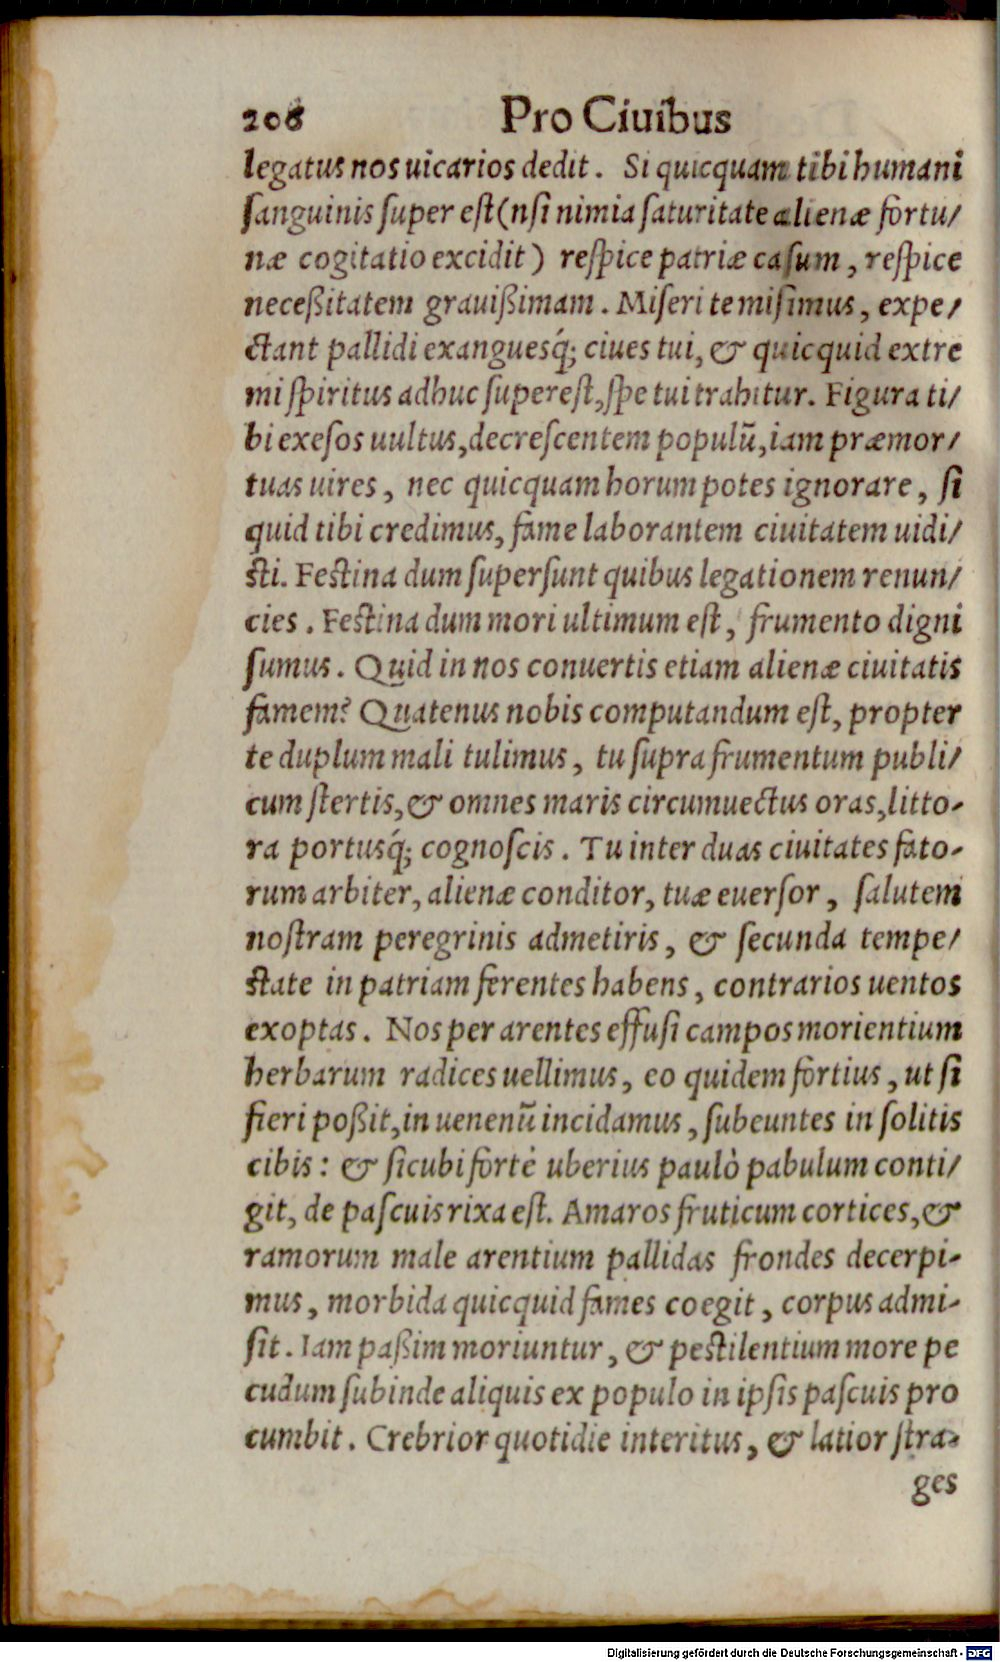 206 Pro Ciuibus
legatus nos uicarios dedit. Si quicquam tibi humani
ſanguinis ſuper eſt (nſi nimia ſaturitate alienæ fortu/
næ cogitatio excidit) reſpice patriæ caſum, reſpice
neceßitatem grauißimam. Miſeri te miſimus, expe/
ctant pallidi exanguesq́; ciues tui, & quicquid extre
mi ſpiritus adhuc ſupereſt, ſpe tui trahitur. Figura ti/
bi exeſos uultus, decreſcentem populũ, iam præmor/
tuas uires, nec quicquam horum potes ignorare, ſi
quid tibi credimus, fame laborantem ciuitatem uidi/
ſti. Feſtina dum ſuperſunt quibus legationem renun/
cies. Feſtina dum mori ultimum eſt, frumento digni
ſumus. Quid in nos conuertis etiam alienæ ciuitatis
famem? Quatenus nobis computandum eſt, propter
te duplum mali tulimus, tu ſupra frumentum publi/
cum ſtertis, & omnes maris circumuectus oras, litto-
ra portusq́; cognoſcis. Tu inter duas ciuitates fato-
rum arbiter, alienæ conditor, tuæ euerſor, ſalutem
noſtram peregrinis admetiris, & ſecunda tempe/
ſtate in patriam ferentes habens, contrarios uentos
exoptas. Nos per arentes effuſi campos morientium
herbarum radices uellimus, eo quidem fortius, ut ſi
fieri poßit, in uenenũ incidamus, ſubeuntes in ſolitis
cibis: & ſicubi fortè uberius paulò pabulum conti/
git, de paſcuis rixa eſt. Amaros fruticum cortices, &
ramorum male arentium pallidas frondes decerpi-
mus, morbida quicquid fames coegit, corpus admi-
ſit. Iam paßim moriuntur, & peſtilentium more pe
cudum ſubinde aliquis ex populo in ipſis paſcuis pro
cumbit. Crebrior quotidie interitus, & latior ſtra-
ges
Digitalisierung gefördert durch die Deutsche Forschungsgemeinschaft - DFG